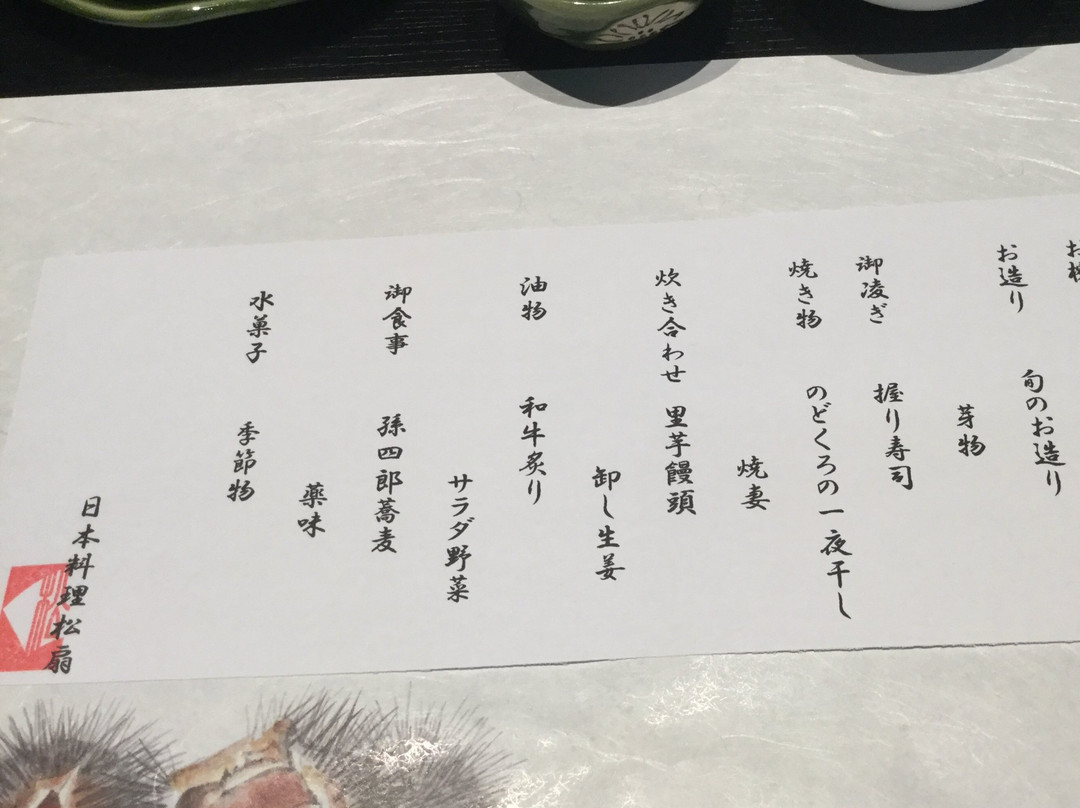 お造り 旬のお造り
芽物
御凌ぎ 握り寿司
焼き物 のどくろの一夜干し
焼妻
炊き合わせ 里芋饅頭
卸し生姜
油物 和牛炙り
サラダ野菜
御食事 孫四郎蕎麦
薬味
水菓子 季節物
日本料理松扇